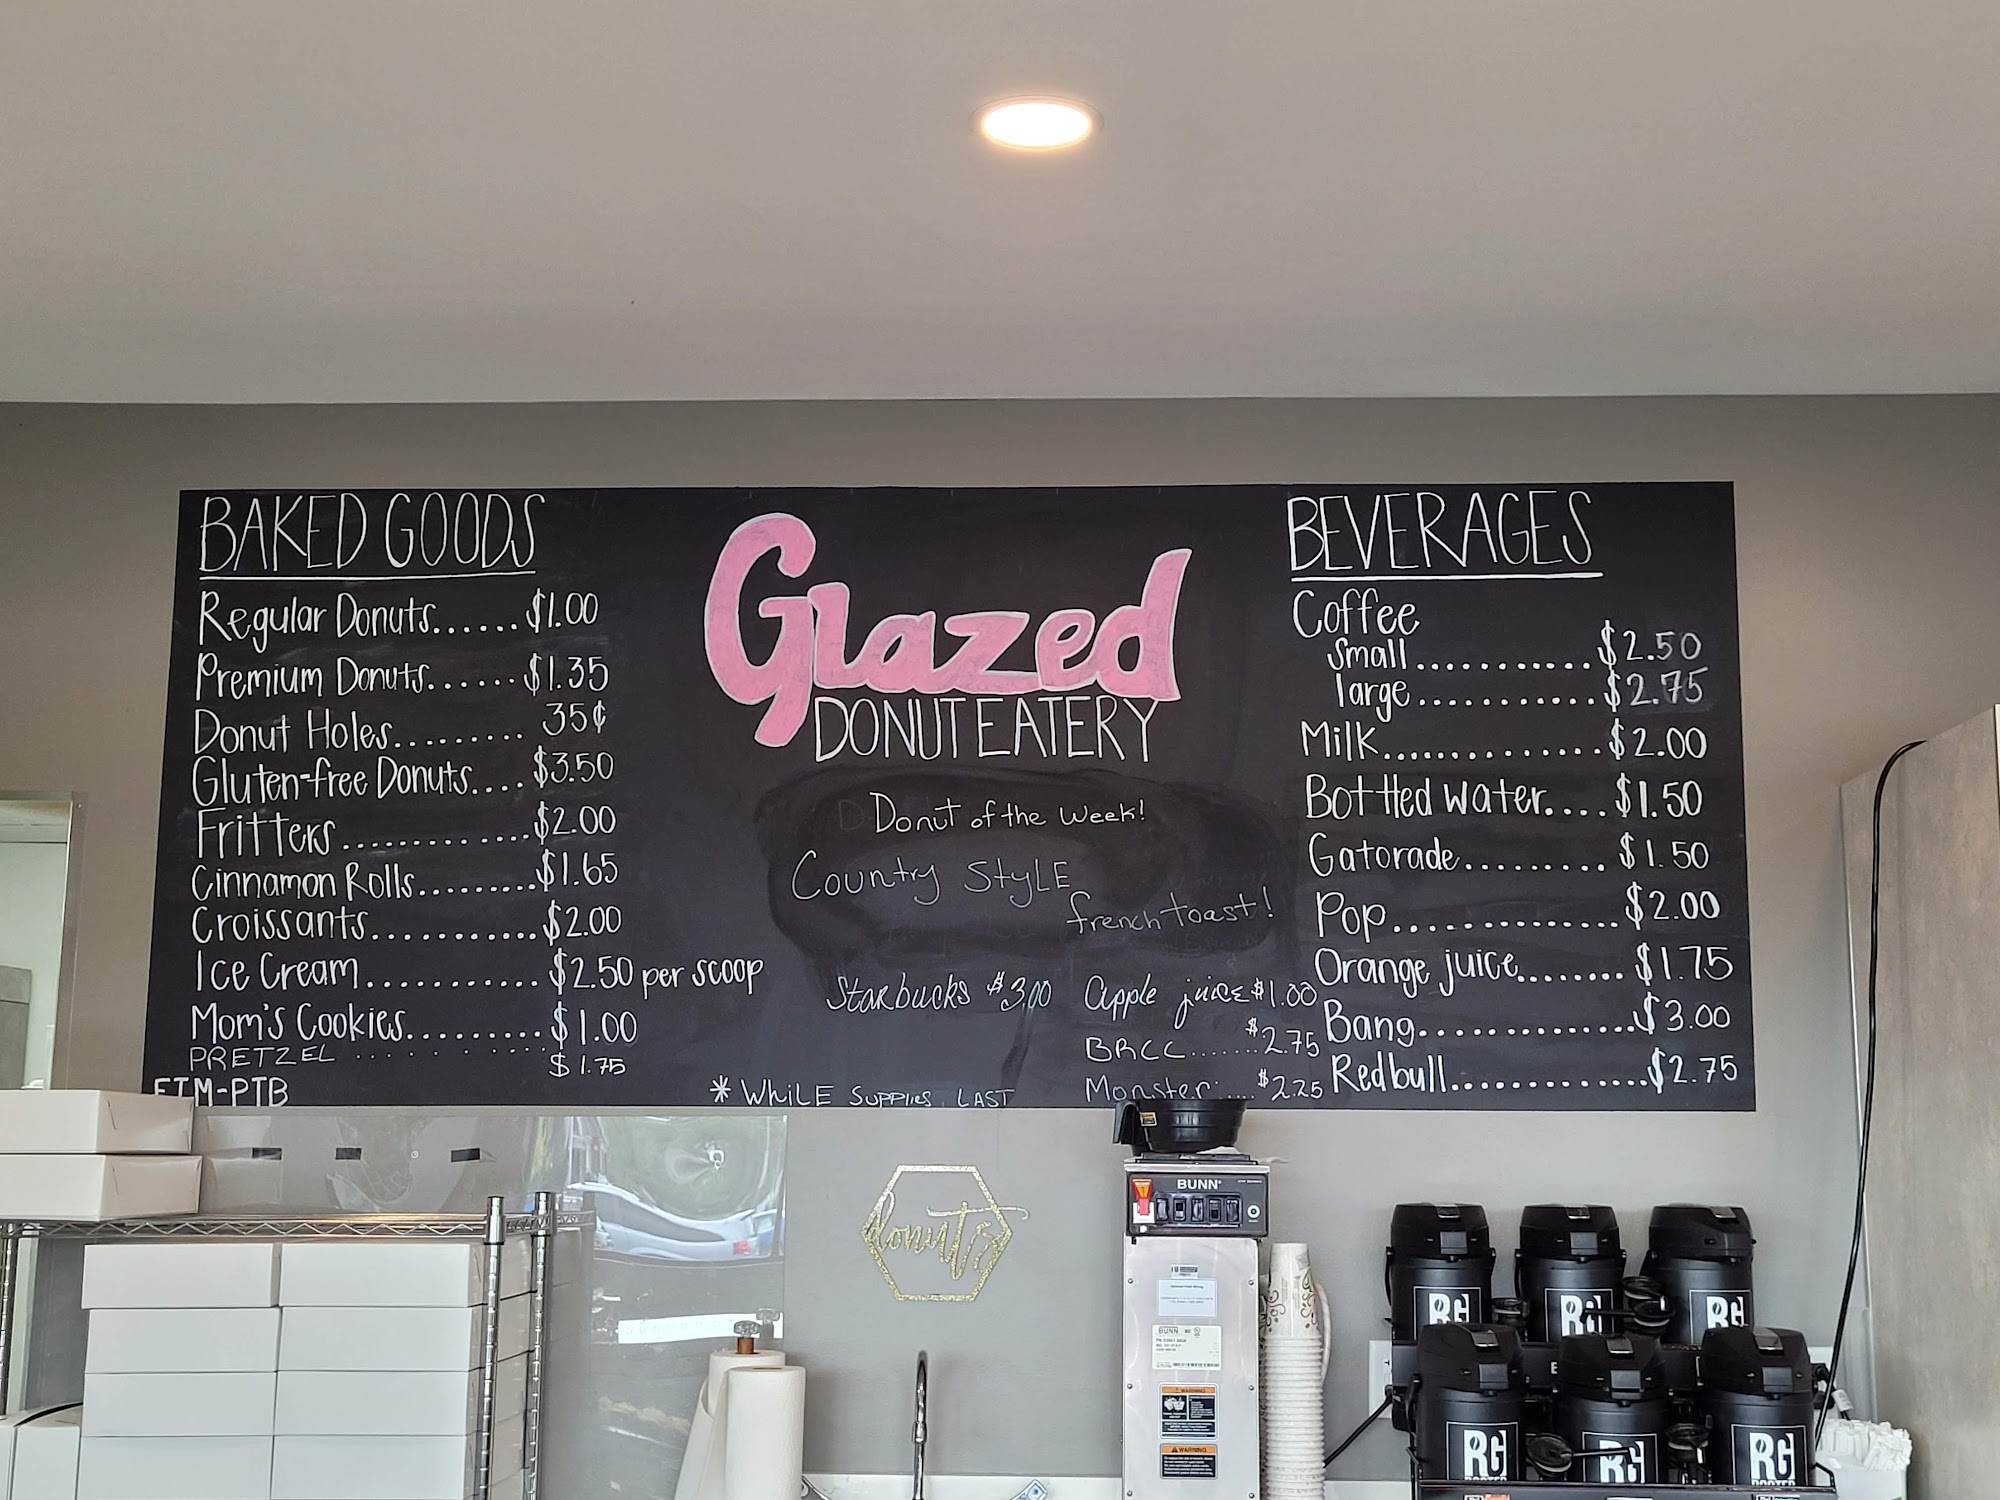 BAKED GOODS
Regular Donuts......$1.00
Premium Donuts......$1.35
Donut Holes......... 35¢
Gluten-free Donuts....$3.50
Fritters............$2.00
Cinnamon Rolls.........$1.65
Croissants............$2.00
Ice Cream............$2.50 per scoop
Mom's Cookies.........$1.00
PRETZEL ............ $1.75
FTM-PTB
Glazed
DONUT EATERY
Donut of the Week!
Country StyLE
french toast!
Starbucks $3.00
* WhiLE SuppliES LAST
Apple juice $1.00
BRCC.......$2.75
Monster.....$2.25
BEVERAGES
Coffee
small............$2.50
large............$2.75
Milk..............$2.00
Bottled water....$1.50
Gatorade.........$1.50
Pop..............$2.00
Orange juice........$1.75
Bang..............$3.00
Redbull.............$2.75
donuts
BUNN
BUNN
WARNING
WARNING
RG
RG
RG
RG
ROOTER
RG
RG
ROOTER